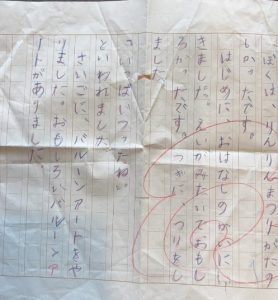 ぼくは、りんりんまつりがたの
しかったです。
はじめに、おはなしのかいにい
きました。えいがみたいでおもし
ろかったです。つぎに、つりをし
ました。
「いっぱいつったね。」
といわれました。
さいごに、バルーンアートをや
りました。おもしろいバルーンア
ートがありました。